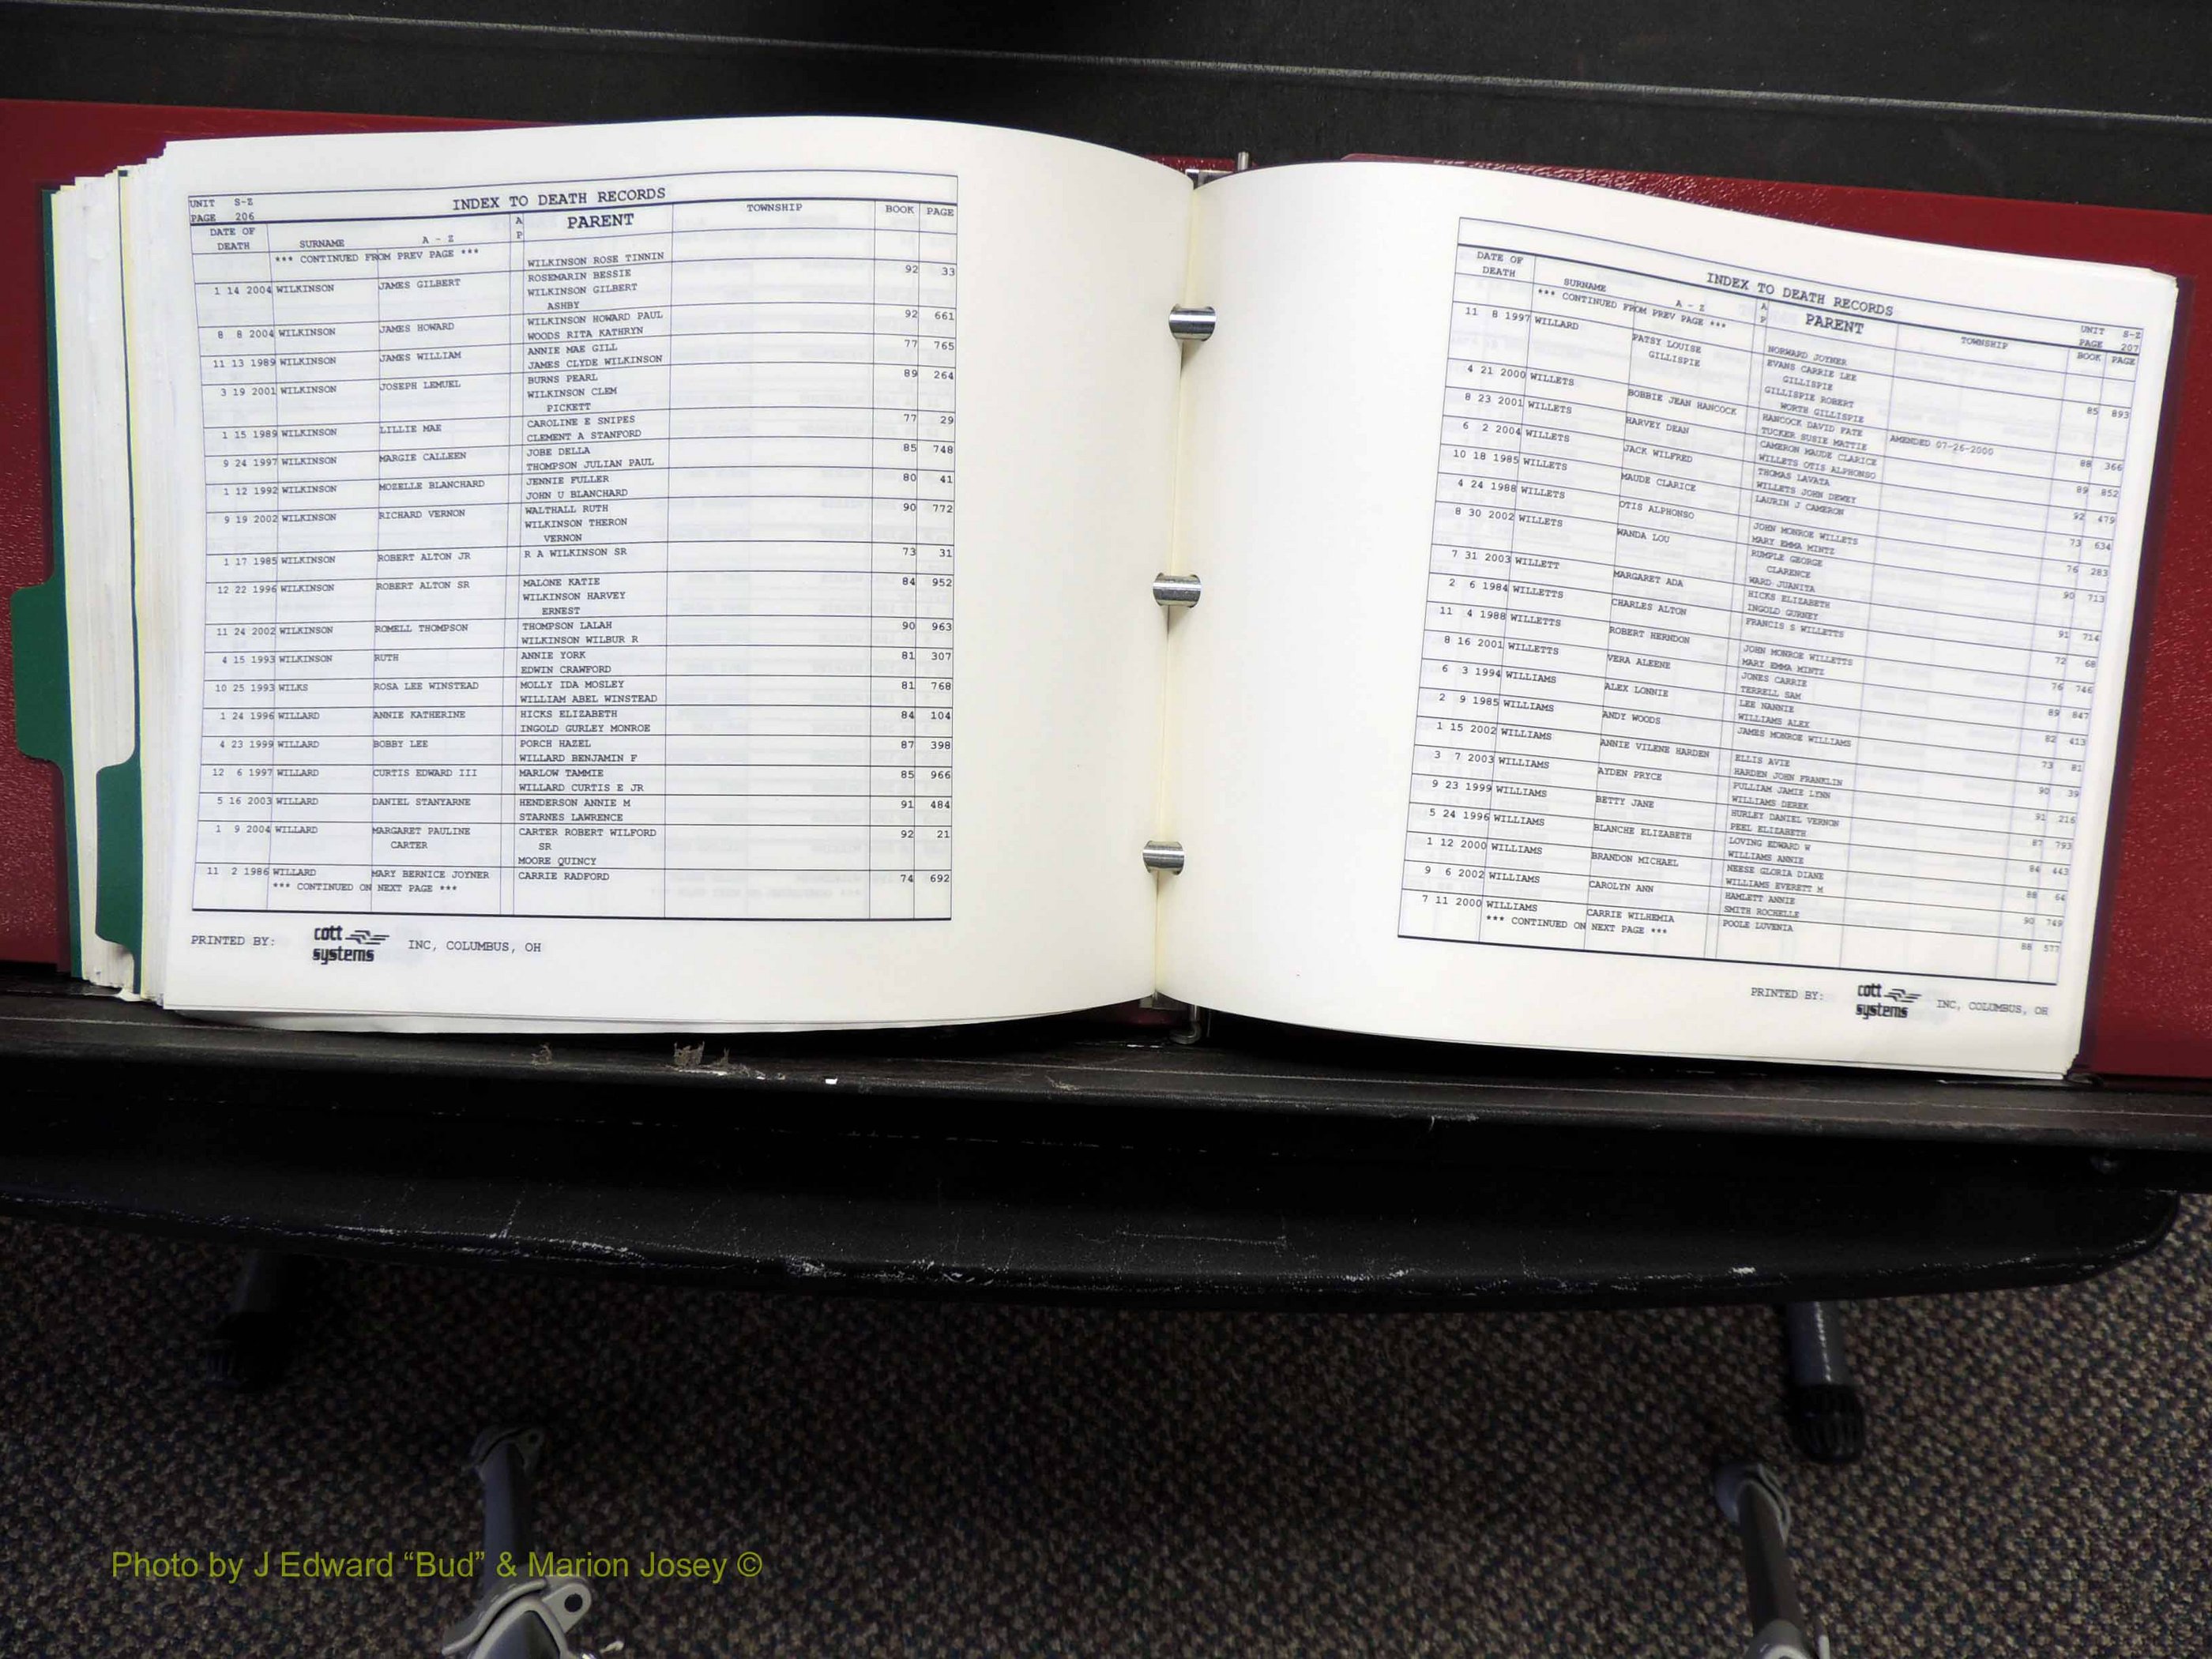 UNIT S-Z
INDEX TO DEATH RECORDS
PAGE 206
DATE OF DEATH SURNAME A - Z A P PARENT TOWNSHIP BOOK PAGE
*** CONTINUED FROM PREV PAGE *** WILKINSON ROSE TINNIN
1 14 2004 WILKINSON JAMES GILBERT ROSEMARIN BESSIE 92 33
WILKINSON GILBERT
ASHBY
8 8 2004 WILKINSON JAMES HOWARD WILKINSON HOWARD PAUL 92 661
WOODS RITA KATHRYN
11 13 1989 WILKINSON JAMES WILLIAM ANNIE MAE GILL 77 765
JAMES CLYDE WILKINSON
3 19 2001 WILKINSON JOSEPH LEMUEL BURNS PEARL 89 264
WILKINSON CLEM
PICKETT
1 15 1989 WILKINSON LILLIE MAE CAROLINE E SNIPES 77 29
CLEMENT A STANFORD
9 24 1997 WILKINSON MARGIE CALLEEN JOBE DELLA 85 748
THOMPSON JULIAN PAUL
1 12 1992 WILKINSON MOZELLE BLANCHARD JENNIE FULLER 80 41
JOHN U BLANCHARD
9 19 2002 WILKINSON RICHARD VERNON WALTHALL RUTH 90 772
WILKINSON THERON
VERNON
1 17 1985 WILKINSON ROBERT ALTON JR R A WILKINSON SR 73 31
12 22 1996 WILKINSON ROBERT ALTON SR MALONE KATIE 84 952
WILKINSON HARVEY
ERNEST
11 24 2002 WILKINSON ROMELL THOMPSON THOMPSON LALAH 90 963
WILKINSON WILBUR R
4 15 1993 WILKINSON RUTH ANNIE YORK 81 307
EDWIN CRAWFORD
10 25 1993 WILKS ROSA LEE WINSTEAD MOLLY IDA MOSLEY 81 768
WILLIAM ABEL WINSTEAD
1 24 1996 WILLARD ANNIE KATHERINE HICKS ELIZABETH 84 104
INGOLD GURLEY MONROE
4 23 1999 WILLARD BOBBY LEE PORCH HAZEL 87 398
WILLARD BENJAMIN F
12 6 1997 WILLARD CURTIS EDWARD III MARLOW TAMMIE 85 966
WILLARD CURTIS E JR
5 16 2003 WILLARD DANIEL STANYARNE HENDERSON ANNIE M 91 484
STARNES LAWRENCE
1 9 2004 WILLARD MARGARET PAULINE CARTER ROBERT WILFORD 92 21
CARTER SR
MOORE QUINCY
11 2 1986 WILLARD MARY BERNICE JOYNER CARRIE RADFORD 74 692
*** CONTINUED ON NEXT PAGE ***
PRINTED BY: cott systems INC, COLUMBUS, OH
INDEX TO DEATH RECORDS
UNIT S-Z
PAGE 207
DATE OF DEATH SURNAME A - Z A P PARENT TOWNSHIP BOOK PAGE
*** CONTINUED FROM PREV PAGE *** NORWARD JOYNER
11 8 1997 WILLARD PATSY LOUISE EVANS CARRIE LEE 85 893
GILLISPIE GILLISPIE
GILLISPIE ROBERT
WORTH GILLISPIE
4 21 2000 WILLETS BOBBIE JEAN HANCOCK HANCOCK DAVID PATE AMENDED 07-26-2000 88 366
TUCKER SUSIE MATTIE
8 23 2001 WILLETS HARVEY DEAN CAMERON MAUDE CLARICE 89 852
WILLETS OTIS ALPHONSO
6 2 2004 WILLETS JACK WILFRED THOMAS LAVATA 92 479
WILLETS JOHN DEWEY
10 18 1985 WILLETS MAUDE CLARICE LAURIN J CAMERON 73 634
4 24 1988 WILLETS OTIS ALPHONSO JOHN MONROE WILLETS 76 283
MARY EMMA MINTZ
8 30 2002 WILLETS WANDA LOU RUMPLE GEORGE 90 713
CLARENCE
WARD JUANITA
7 31 2003 WILLETT MARGARET ADA HICKS ELIZABETH 91 714
INGOLD GURNEY
2 6 1984 WILLETTS CHARLES ALTON FRANCIS S WILLETTS 72 68
11 4 1988 WILLETTS ROBERT HERNDON JOHN MONROE WILLETTS 76 746
MARY EMMA MINTZ
8 16 2001 WILLETTS VERA ALEENE JONES CARRIE 89 847
TERRELL SAM
6 3 1994 WILLIAMS ALEX LONNIE LEE NANNIE 82 413
WILLIAMS ALEX
2 9 1985 WILLIAMS ANDY WOODS JAMES MONROE WILLIAMS 73 81
1 15 2002 WILLIAMS ANNIE VILENE HARDEN ELLIS AVIE 90 39
HARDEN JOHN FRANKLIN
3 7 2003 WILLIAMS AYDEN PRYCE PULLIAM JAMIE LYNN 91 216
WILLIAMS DEREK
9 23 1999 WILLIAMS BETTY JANE HURLEY DANIEL VERNON 87 793
PEEL ELIZABETH
5 24 1996 WILLIAMS BLANCHE ELIZABETH LOVING EDWARD W 84 443
WILLIAMS ANNIE
1 12 2000 WILLIAMS BRANDON MICHAEL NEESE GLORIA DIANE 88 64
WILLIAMS EVERETT M
9 6 2002 WILLIAMS CAROLYN ANN HAMLETT ANNIE 90 749
SMITH ROCHELLE
7 11 2000 WILLIAMS CARRIE WILHEMIA POOLE LUVENIA 88 577
*** CONTINUED ON NEXT PAGE ***
PRINTED BY: cott systems INC, COLUMBUS, OH
Photo by J Edward “Bud” & Marion Josey ©